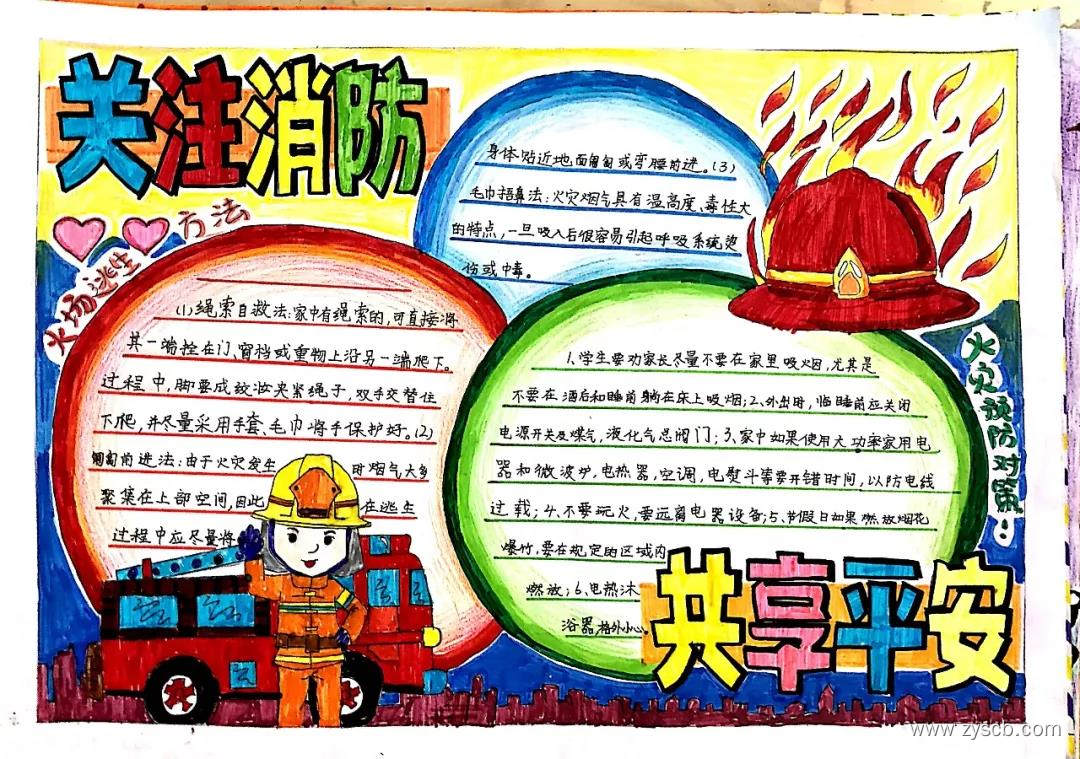 关注消防
火场逃生
方法
(1)绳索自救法:家中有绳索的,可直接将
其一端拴在门、窗档或重物上沿另一端爬下。
过程中,脚要成绞状夹紧绳子,双手交替往
下爬,并尽量采用手套、毛巾将手保护好。(2)
匍匐前进法:由于火灾发生时烟气大多
聚集在上部空间,因此在逃生
过程中应尽量将
身体贴近地面匍匐或弯腰前进。(3)
毛巾捂鼻法:火灾烟气具有温高度、毒性大
的特点,一旦吸入后很容易引起呼吸系统烫
伤或中毒。
火灾预防对策:
1、学生要劝家长尽量不要在家里吸烟,尤其是
不要在酒后和睡前躺在床上吸烟;2、外出时,临睡前应关闭
电源开关及煤气,液化气总阀门;3、家中如果使用大功率家用电
器和微波炉,电热器,空调,电熨斗等要开错时间,以防电线
过载;4、不要玩火,要远离电器设备;5、节假日如果燃放烟花
爆竹,要在规定的区域内
燃放;6、电热沐
浴器,格外小心
共享平安
www.zyscb.com